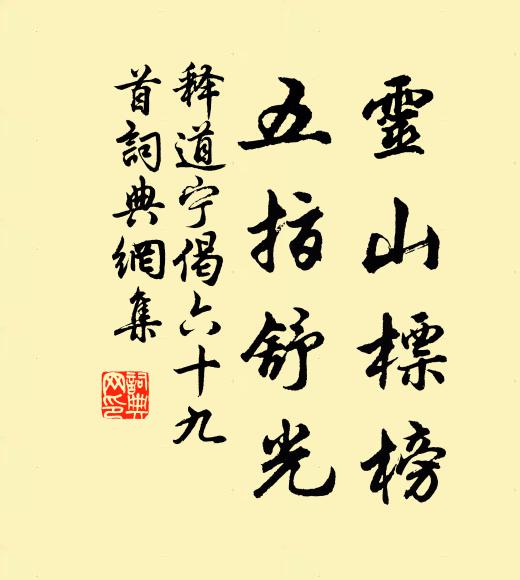 靈山標榜
五指舒光
释道宁偈六十九
首詞典網集
詞典
网印